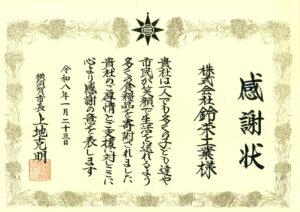 感謝状
株式会社鈴木工業様
貴社は一人でも多くの子ども達や
市民が笑顔で生活を送れるよう
多くの食糧等を寄附されました
貴社のご厚情とご支援に対しここに
心より感謝の意を表します
令和八年一月二十三日
横須賀市長 上地克明